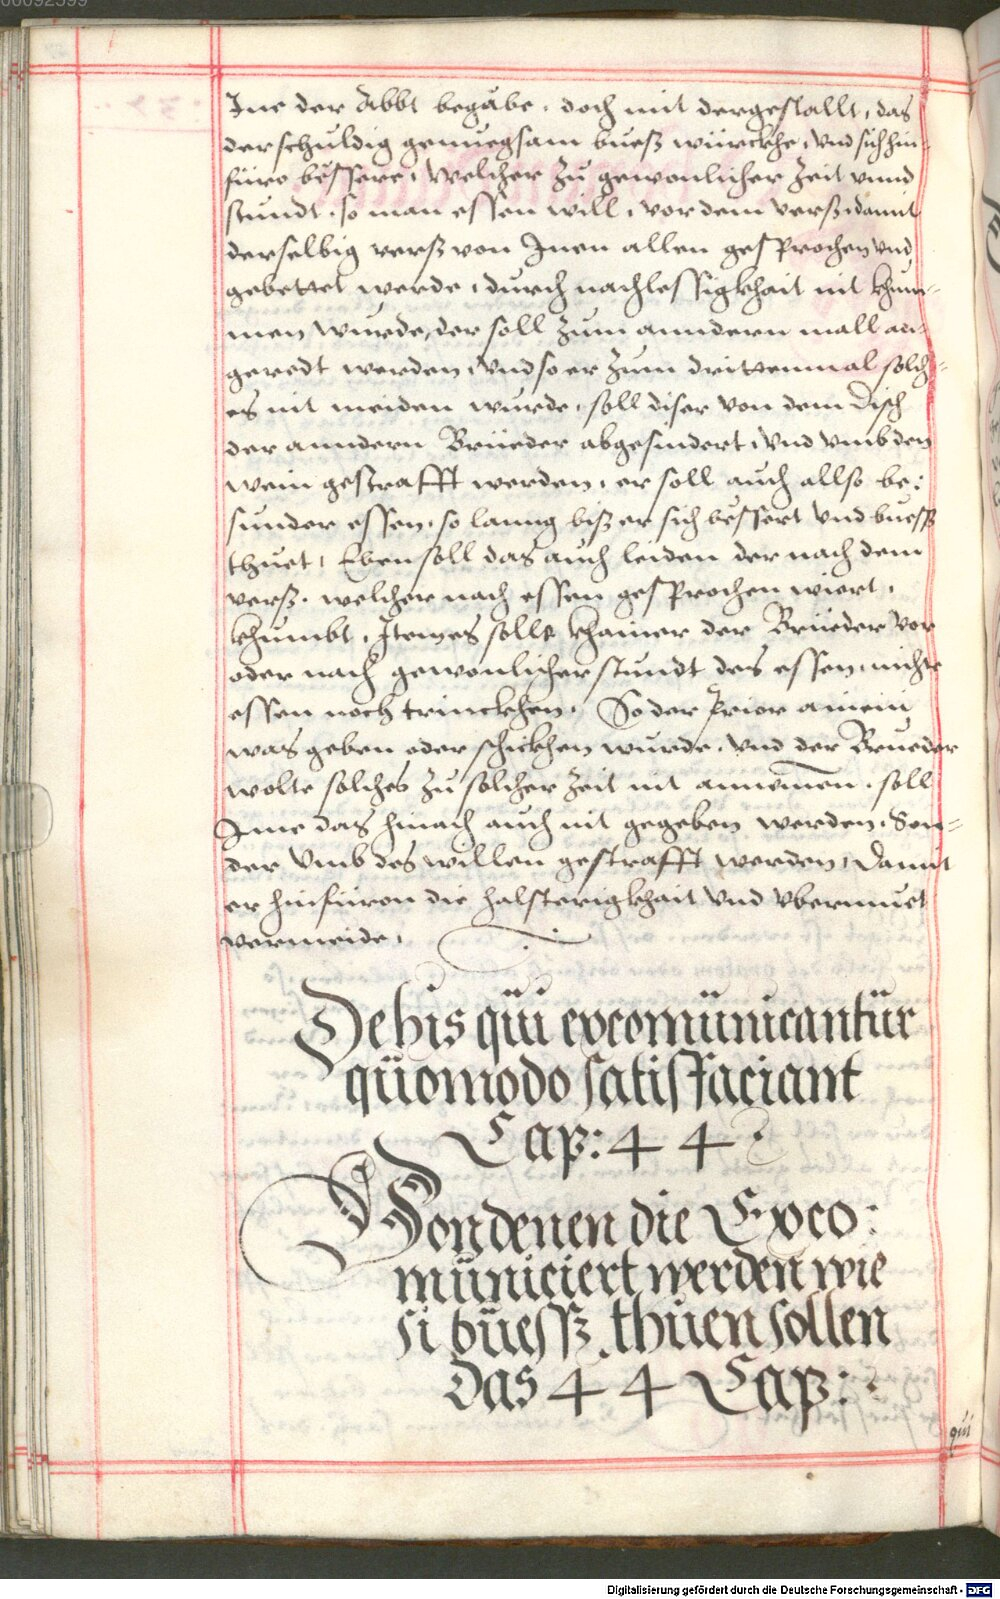 Ine der Abbt begäbe, doch mit dergestallt, das
der schuldig genuegsam buesz würckhe, Vnd sich hin-
füro bessere, Welcher zu gewonlicher Zeit vnnd
stundt, so man essen will, vor dem versz, damit
derselbig versz von Inen allen gesprochen vnd
gebettet werde, durch nachlessigkhait nit khum-
men wurde, der soll zum anndern mall an-
geredt werden, Vnd so er zum drittenmal solch-
es nit meiden wurde, soll diser von dem Disch
der anndern Brüeder abgesündert, Vnd vmb den
wein gestrafft werden, er soll auch allso be:
sunder essen, so lanng bisz er sich bessert Vnd buesz
thuet, Eben soll das auch leiden der nach dem
versz, welcher nach essen gesprochen wiert,
khumbt, Item es solle khainer der Brüeder Vor
oder nach gewonlicher stundt des essen, nichts
essen noch trinckhen, So der Prior ainem
was geben oder schickhen wurde, vnd der Brueder
wolte solches zu solcher Zeit nit annemen, soll
Ime das hinach auch nit gegeben werden, Son-
der Vmb des willen gestrafft werden, Damit
er hinfüron die halsterigkhait Vnd Vbermuet
vermeide,
De his qui excomunicantur
quomodo satisfaciant
Cap: 44
Von denen die Exco:
municiert werden wie
si buesz thuen sollen
Das 44 Cap:
qui
Digitalisierung gefördert durch die Deutsche Forschungsgemeinschaft - DFG